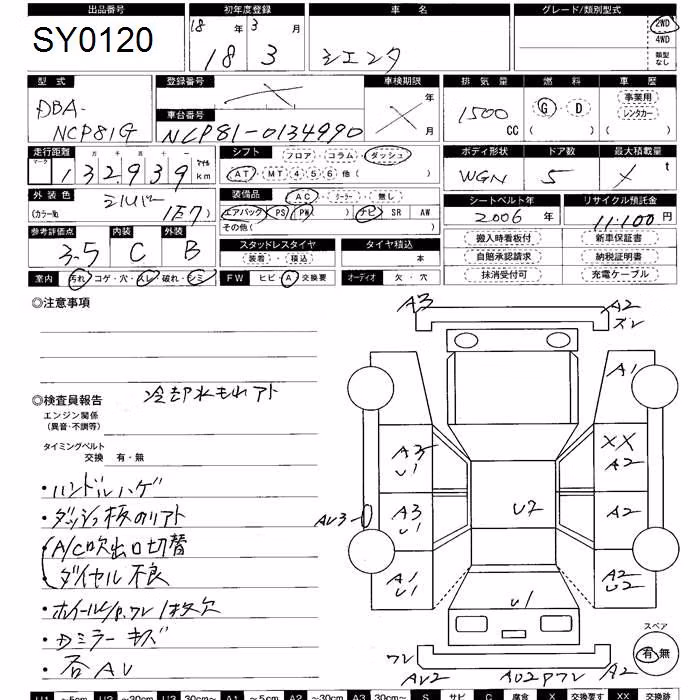 出品番号 初年度登録 車名 グレード/類別型式
SY0120 18年 3月 2WD
18 3 シエンタ 4WD
類型なし
型式 登録番号 車検期限 排気量 燃料 車歴
DBA- X 年 1500 G・D 事業用
NCP81G 車台番号 X 月 CC ( ) レンタカー
NCP81-0134990 ( )
走行距離 シフト フロア・コラム・ダッシュ ボディ形状 ドア数 最大積載量
マーク 十 万 千 百 十 一 マイル
132939 km AT・MT 4・5・6 他( ) WGN 5 X t
外装色 シルバー 装備品 AC・クーラー・無し シートベルト年 リサイクル預託金
(カラーNo. 1E7) エアバック PS PW ナビ SR AW 2006年 11,100円
その他( )
参考評価点 内装 外装 搬入時看板付 新車保証書
3.5 C B スタッドレスタイヤ タイヤ積込 自賠承認請求 納税証明書
装着・積込 本 抹消受付可 充電ケーブル
室内 汚れ・コゲ・穴・スレ・破れ・シミ FW ヒビ・A・交換要 オーディオ 欠・穴
◎注意事項
◎検査員報告 冷却水もれアト
エンジン関係
(異音・不調等)
タイミングベルト
交換 有・無
・ハンドルハゲ
・ダッシュ板のリアト
・A/C吹出口切替
ダイヤル不良
・ホイールキャップワレ1枚欠
・Dミラーキズ
・各AU
A3 A2
ズレ
A1
A3 XX
U1 A2
AU3 A3 U2 A2
U1
A1 A2
U1 U2
U1
ワレ AU2 AU2Pワレ A2
スペア
有・無
U1 ~5cm U2 ~30cm U3 30cm~ A1 ~5cm A2 ~30cm A3 30cm~ S サビ C 腐食 X 交換要す XX 交換跡